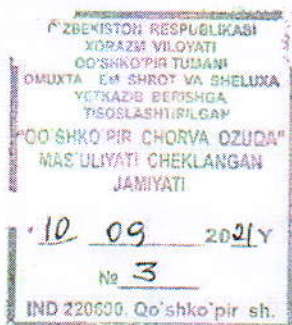 O'ZBEKISTON RESPUBLIKASI
XORAZM VILOYATI
QO'SHKO'PIR TUMANI
OMUXTA EM SHROT VA SHELUXA
YETKAZIB BERISHGA
IXTISOSLASHTIRILGAN
"QO'SHKO'PIR CHORVA OZUQA"
MAS'ULIYATI CHEKLANGAN
JAMIYATI
10 09 2021 Y
№ 3
IND 220600. Qo'shko'pir sh.